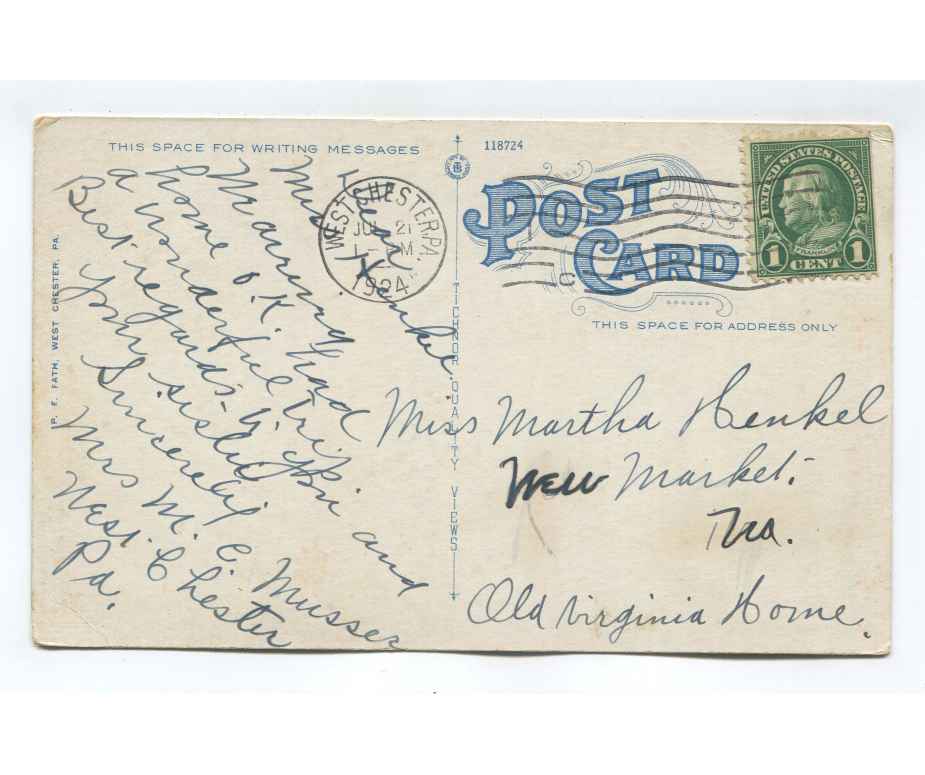 THIS SPACE FOR WRITING MESSAGES
Dear
Miss Henkel.
home O.K. Had
a wonderful trip
Best regards to you and
your sister
Sincerely
Mrs M. C. Musser
West Chester
Pa.
P. E. FATH, WEST CHESTER, PA.
WEST CHESTER, PA.
JUL 21
1924
TICHNOR QUALITY VIEWS
118724
POST CARD
UNITED STATES POSTAGE
FRANKLIN
1 CENT 1
THIS SPACE FOR ADDRESS ONLY
Miss Martha Henkel
New Market.
Va.
Old Virginia Home.